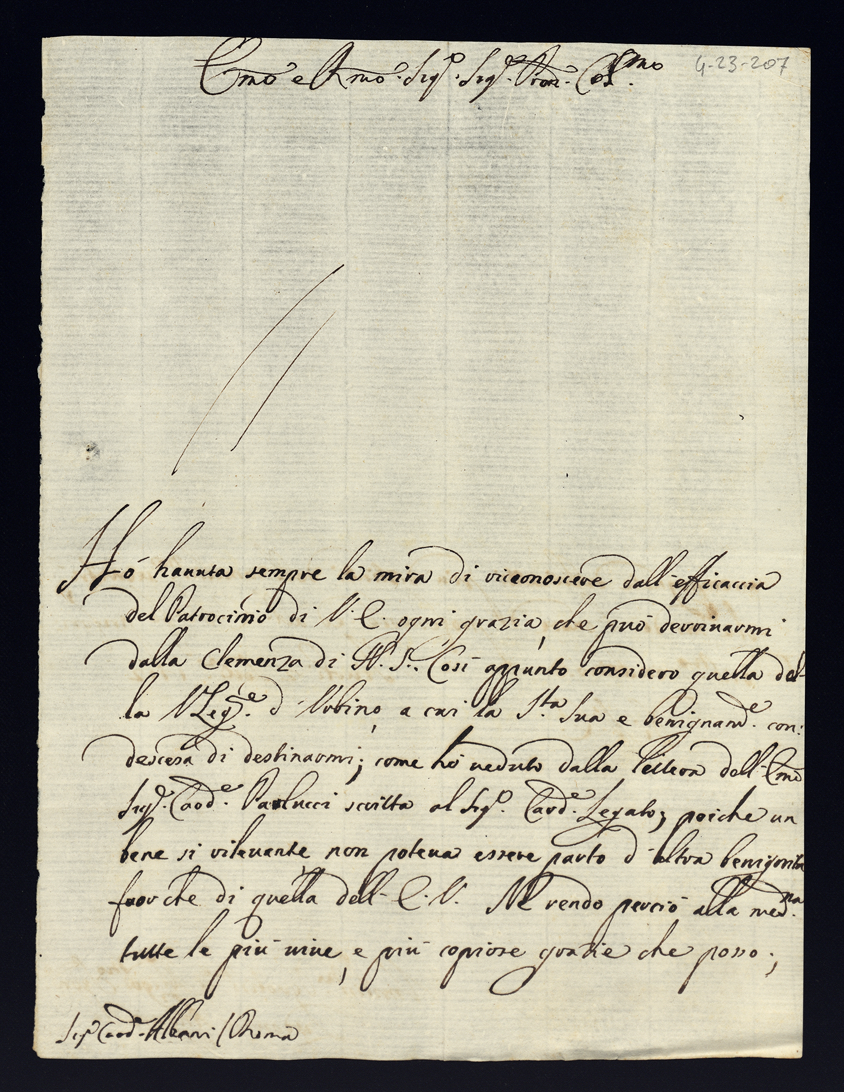 Em̃o e Rm̃o Sig.r Sig.r Pron. Col.mo
4-23-207
Hò hauuta sempre la mira di riconoscere dall'efficaccia
del Patrocinio di V. E. ogni grazia, che può deriuarmi
dalla Clemenza di N. S.re Così appunto considero quella del-
la VLeg.ne d'Vrbino, a cui la S.tà Sua e benignam.e con:
descesa di destinarmi; come hò ueduto dalla lettera dell-Em̃o
Sig.r Card.e Paolucci scritta al Sig.r Card.e Legato; poiche un
bene si rileuante non poteua essere parto d'altra benignità
fuor che di quella dell-E. V. Ne rendo perciò alla med.ma
tutte le più uiue, e più copiose grazie che posso;
Sig.r Card. Albani / Roma